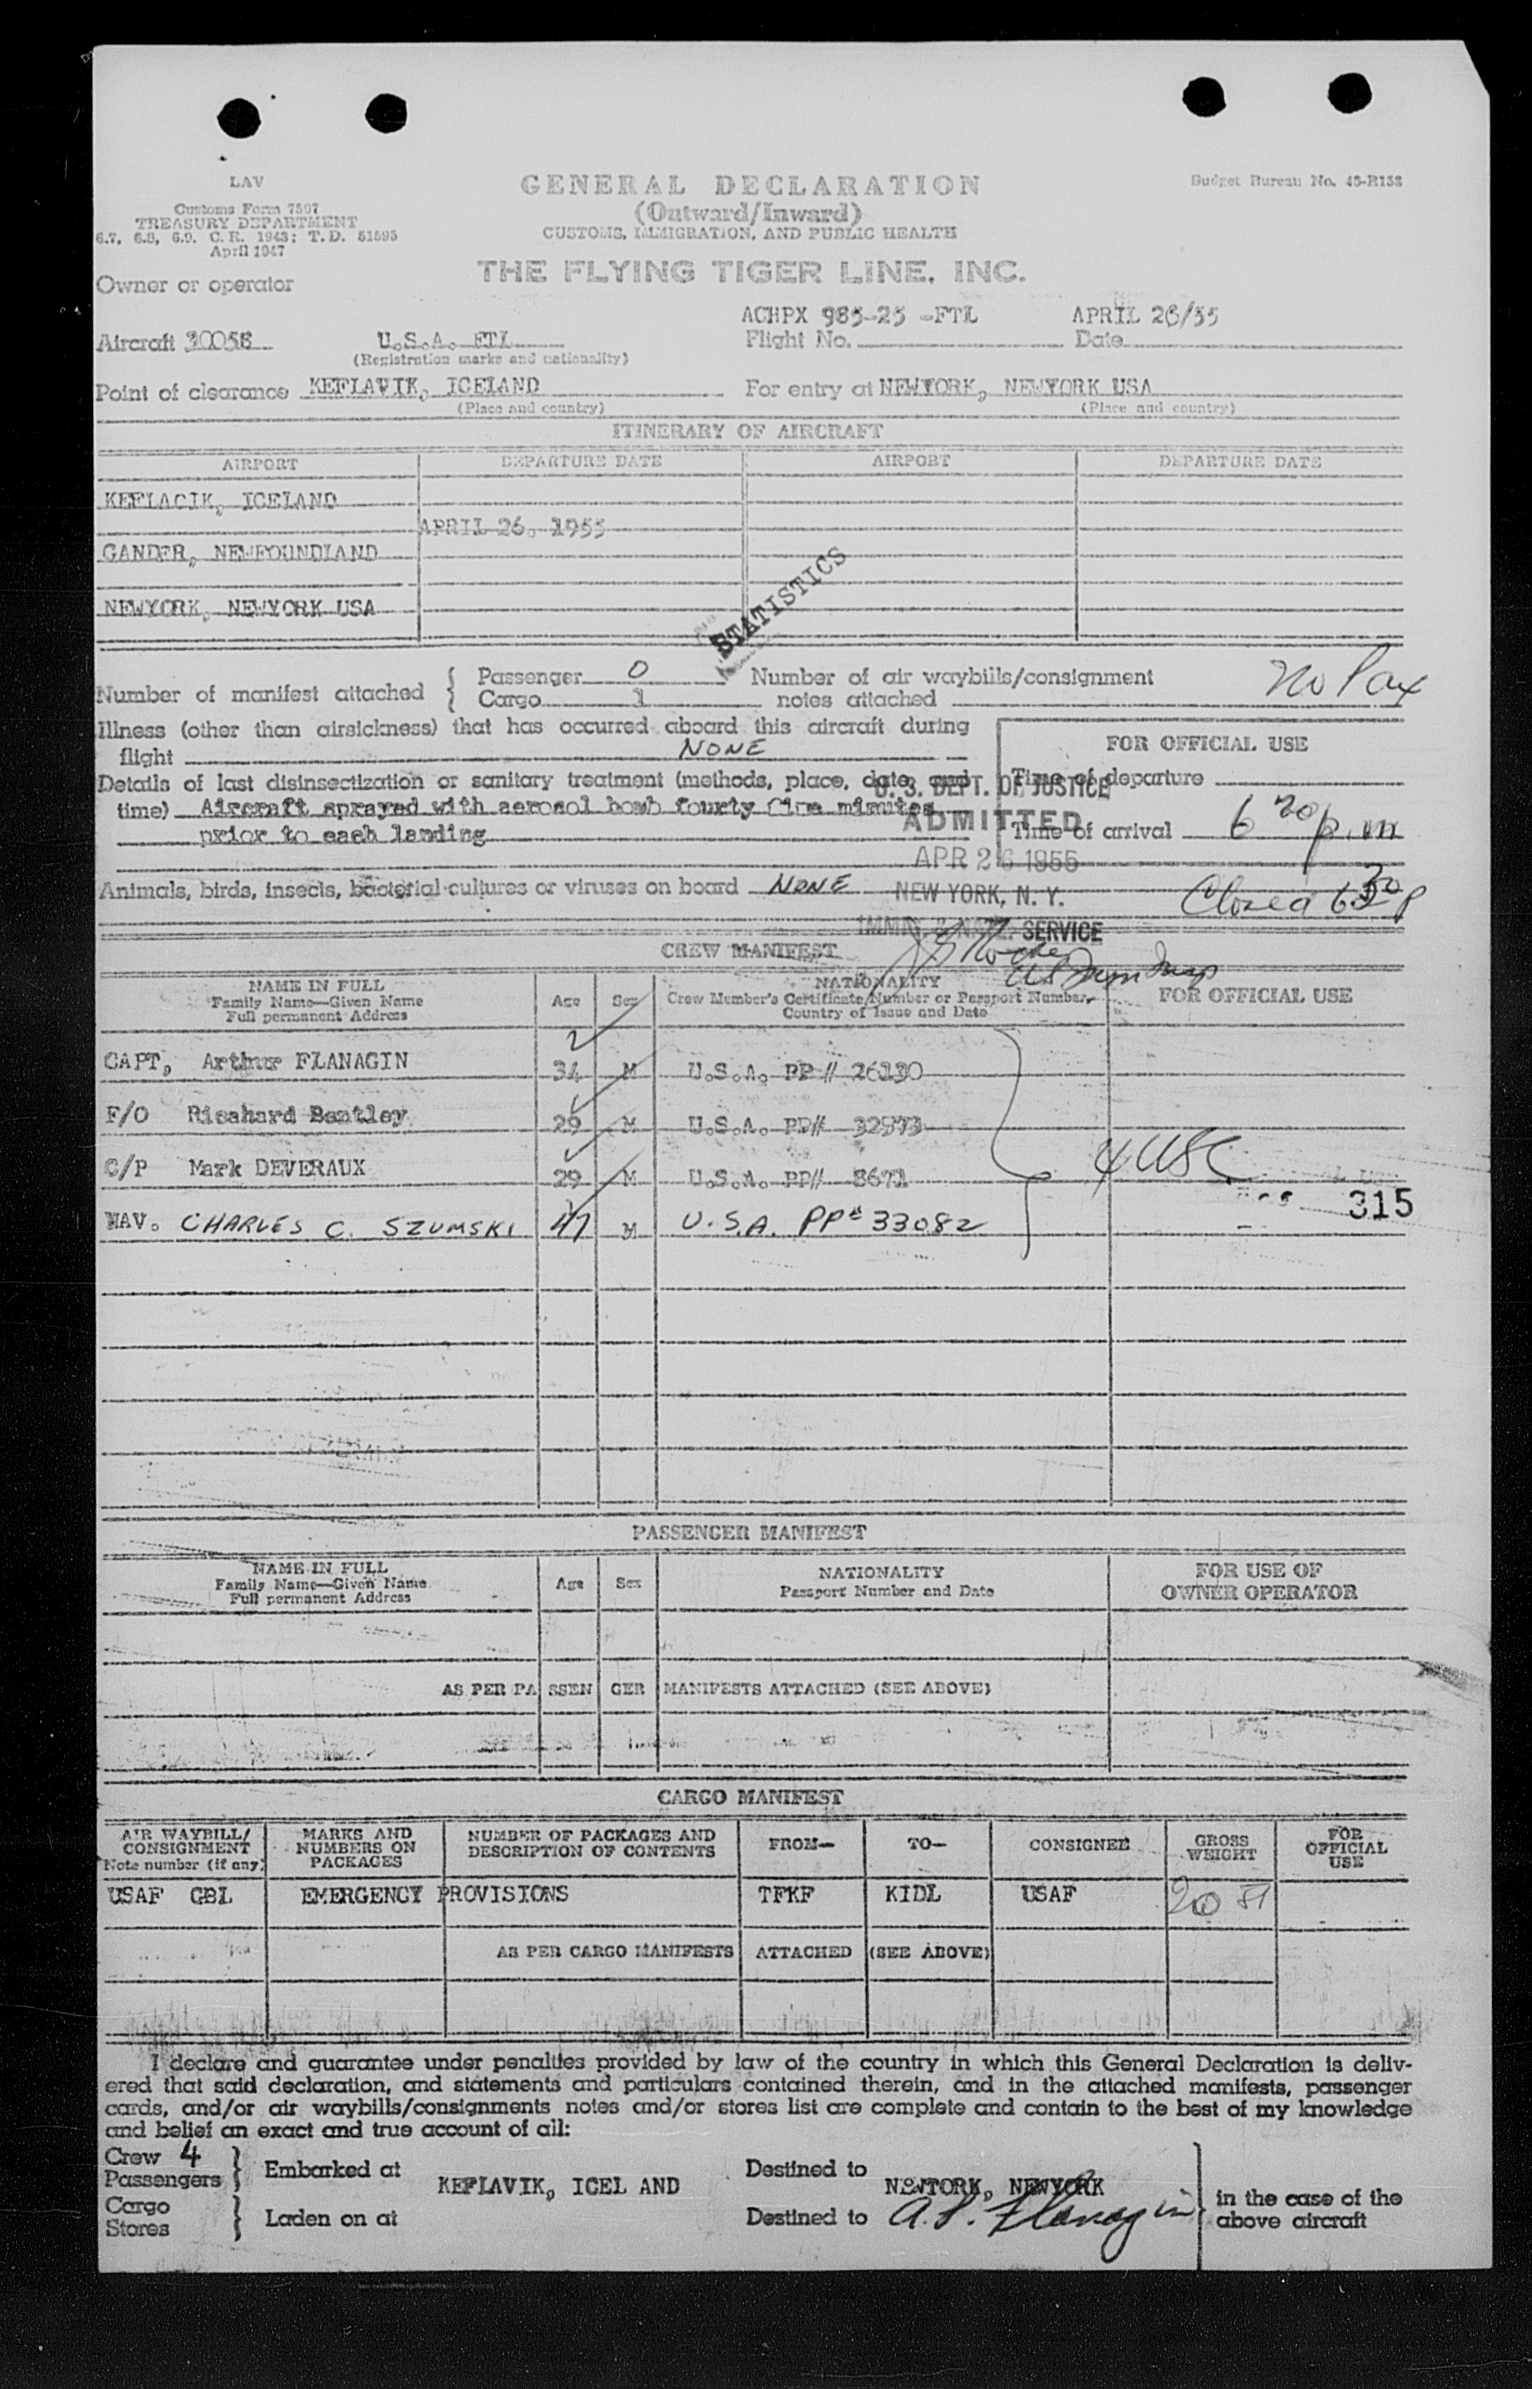 LAV
Customs Form 7507
TREASURY DEPARTMENT
6.7, 6.8, 6.9. C. R. 1943; T. D. 51595
April 1947
GENERAL DECLARATION
(Outward/Inward)
CUSTOMS, IMMIGRATION, AND PUBLIC HEALTH
Budget Bureau No. 48-R138
THE FLYING TIGER LINE, INC.
Owner or operator
ACHPX 985-25 -FTL APRIL 26/55
Aircraft 30058 U.S.A. FTL Flight No. Date
(Registration marks and nationality)
Point of clearance KEFLAVIK, ICELAND For entry at NEWYORK, NEWYORK USA
(Place and country) (Place and country)
ITINERARY OF AIRCRAFT
AIRPORT DEPARTURE DATE AIRPORT DEPARTURE DATE
KEFLACIK, ICELAND
APRIL 26, 1955
GANDER, NEWFOUNDLAND
NEWYORK, NEWYORK USA
STATISTICS
Number of manifest attached { Passenger 0 Number of air waybills/consignment
Cargo 1 notes attached
No Pax
Illness (other than airsickness) that has occurred aboard this aircraft during
flight NONE
FOR OFFICIAL USE
Details of last disinsectization or sanitary treatment (methods, place, date, and
time) Aircraft sprayed with aerosol bomb fourty five minutes
prior to each landing
Time of departure
Time of arrival 6 20 p.m
U. S. DEPT. OF JUSTICE
ADMITTED
APR 26 1955
NEW YORK, N. Y.
IMMIG. & NATZ. SERVICE
Animals, birds, insects, bacterial cultures or viruses on board NONE
Closed 6 30 P
CREW MANIFEST
NAME IN FULL
Family Name—Given Name
Full permanent Address
Age Sex
NATIONALITY
Crew Member's Certificate Number or Passport Number,
Country of Issue and Date
FOR OFFICIAL USE
CAPT, Arthur FLANAGIN 34 M U.S.A. PP # 26130
F/O Risahard Bentley 29 M U.S.A. PP# 32973
C/P Mark DEVERAUX 29 M U.S.A. PP# 8671
4 USC
NAV. CHARLES C. SZUMSKI 47 M U.S.A. PP# 33082
315
PASSENGER MANIFEST
NAME IN FULL
Family Name—Given Name
Full permanent Address
Age Sex
NATIONALITY
Passport Number and Date
FOR USE OF
OWNER OPERATOR
AS PER PASSENGER MANIFESTS ATTACHED (SEE ABOVE)
CARGO MANIFEST
AIR WAYBILL/
CONSIGNMENT
Note number (if any)
MARKS AND
NUMBERS ON
PACKAGES
NUMBER OF PACKAGES AND
DESCRIPTION OF CONTENTS
FROM— TO— CONSIGNEE
GROSS
WEIGHT
FOR
OFFICIAL
USE
USAF GBL EMERGENCY PROVISIONS TFKF KIDL USAF
AS PER CARGO MANIFESTS ATTACHED (SEE ABOVE)
I declare and guarantee under penalties provided by law of the country in which this General Declaration is deliv-
ered that said declaration, and statements and particulars contained therein, and in the attached manifests, passenger
cards, and/or air waybills/consignments notes and/or stores list are complete and contain to the best of my knowledge
and belief an exact and true account of all:
Crew 4
Passengers } Embarked at KEFLAVIK, ICEL AND Destined to NEWTORK, NEWYORK
Cargo
Stores } Laden on at Destined to A. P. Flanagin
in the case of the
above aircraft